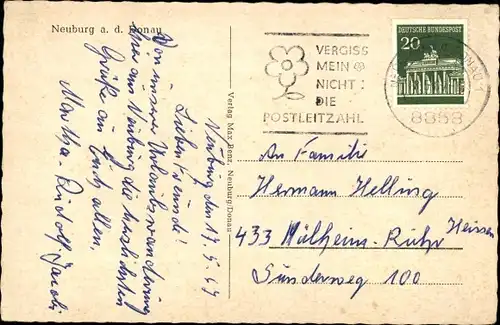 Neuburg a. d. Donau
Neuburg den 17.5.67
Lieben Freunde!
Von unserer Urlaubswanderung
hier aus Neuburg die herzlichsten
Grüße an Euch allen,
Martha, Rudolf Jacobi
Verlag Max Benz, Neuburg/Donau
VERGISS
MEIN
NICHT:
DIE
POSTLEITZAHL
DEUTSCHE BUNDESPOST
20
8858
An Familie
Hermann Helling
433 Mülheim-Ruhr Heissen
Sunderweg 100